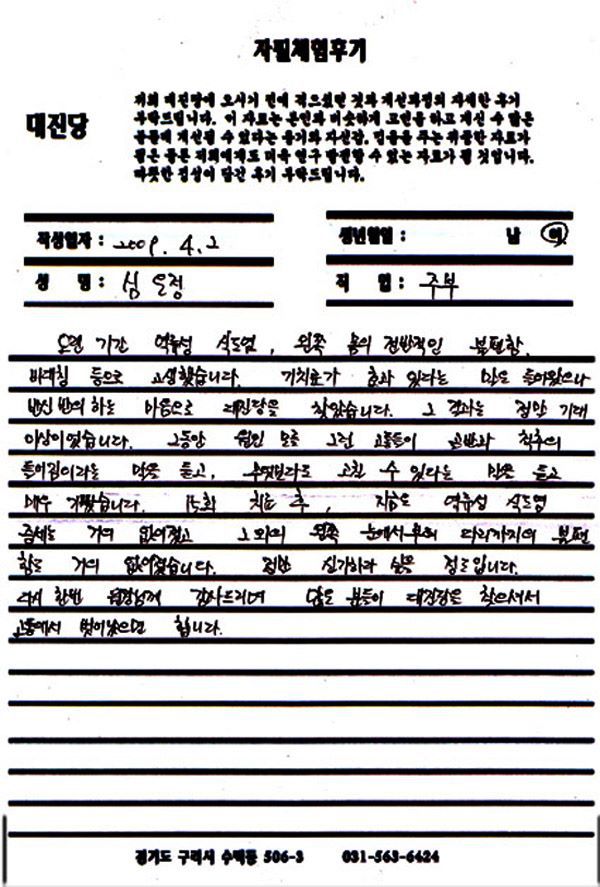 자필체험후기
대진당
저희 대진당에 오시기 전에 적으셨던 것과 개선과정의 자세한 후기
부탁드립니다. 이 자료는 본인과 비슷하게 고민을 하고 계신 수 많은
분들께 개선될 수 있다는 용기와 자신감, 믿음을 주는 귀중한 자료가
됨은 물론 저희에게도 더욱 연구 발전할 수 있는 자료가 될 것입니다.
따뜻한 정성이 담긴 후기 부탁드립니다.
작성일자 : 2009. 4. 2
생년월일 : 남 여
성 명 : 심은정
직 업 : 주부
오랜 기간 역류성 식도염, 왼쪽 몸의 전반적인 불편함.
등으로 고생했습니다. 기치료가 효과 있다는 말은 들어왔으나
반신반의 하는 마음으로 대진당을 찾았습니다. 그 결과는 정말 기대
이상이었습니다. 그동안 원인 모를 그런 고통들이 골반과 척추의
틀어짐이라는 말을 듣고, 무엇보다도 고칠 수 있다는 말을 듣고
매우 기뻤습니다. 15회 치료 후, 지금은 역류성 식도염
증세는 거의 없어졌고 그 외의 왼쪽 눈에서부터 다리까지의 불편
함도 거의 없어졌습니다. 정말 신기하다 싶을 정도입니다.
다시 한번 원장님께 감사드리며 많은 분들이 대진당을 찾으셔서
고통에서 벗어났으면 합니다.
경기도 구리시 수택동 506-3 031-563-6424